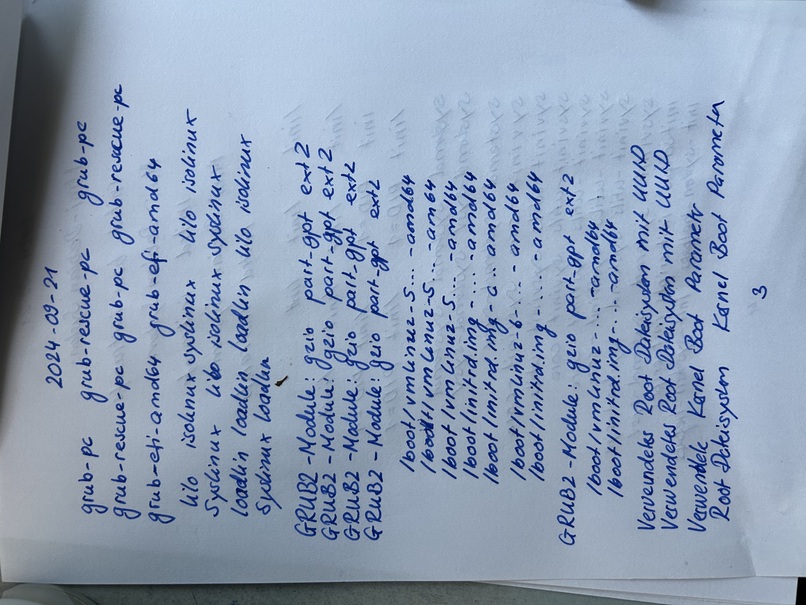 2024-09-21
grub-pc grub-rescue-pc grub-pc
grub-rescue-pc grub-pc grub-rescue-pc
grub-efi-amd64 grub-efi-amd64
lilo isolinux syslinux lilo isolinux
syslinux lilo isolinux syslinux
loadlin loadlin loadlin lilo isolinux
syslinux loadlin
GRUB2-Module: gzio part-gpt ext2
GRUB2-Module: gzio part-gpt ext2
GRUB2-Module: gzio part-gpt ext2
GRUB2-Module: gzio part-gpt ext2
/boot/vmlinuz-5...-amd64
/boot/vmlinuz-5....-am64
/boot/vmlinuz-5....-amd64
/boot/initrd.img-....-amd64
/boot/initrd.img-a..amd64
/boot/vmlinuz-6-....-amd64
/boot/initrd.img-....-amd64
GRUB2-Module: gzio part-gpt ext2
/boot/vmlinuz-....-amd64
/boot/initrd.img-...-amd64
Verwendetes Root Dateisystem mit UUID
Verwendetes Root Dateisystem mit UUID
Verwendete Kernel Boot Parametr
Root Dateisystem Kernel Boot Parameta
3